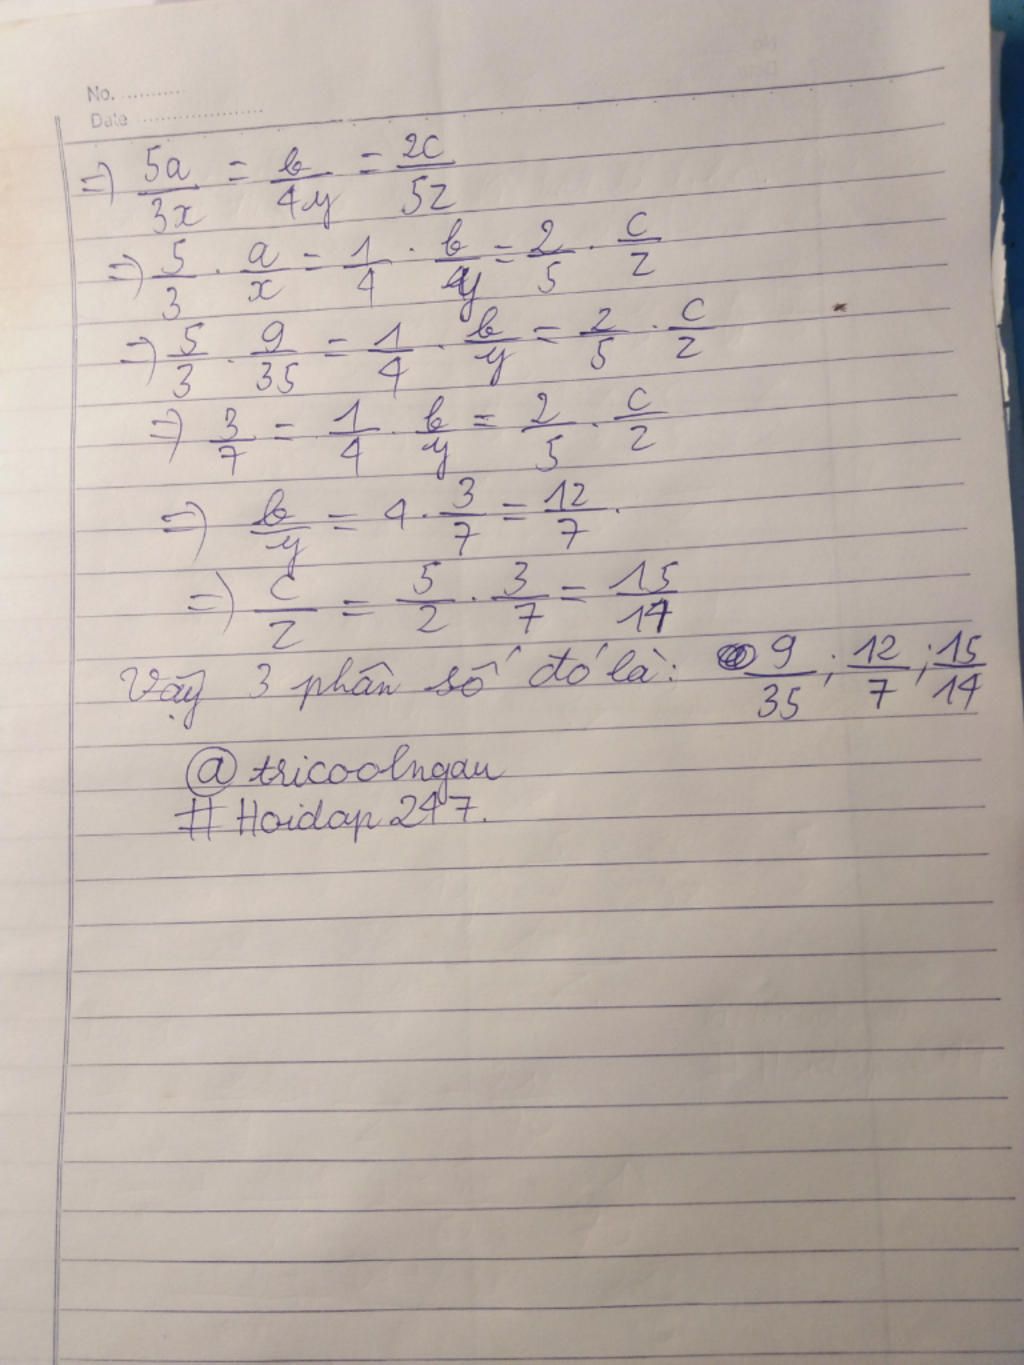 No. ...........
Date ......................
=> 5a/3x = b/4y = 2c/5z
=> 5/3 . a/x = 1/4 . b/y = 2/5 . c/z
=> 5/3 . 9/35 = 1/4 . b/y = 2/5 . c/z
=> 3/7 = 1/4 . b/y = 2/5 . c/z
=> b/y = 4 . 3/7 = 12/7 .
=> c/z = 5/2 . 3/7 = 15/14
Vậy 3 phân số đó là: 9/35 ; 12/7 ; 15/14
@tricoolngau
# Hoidap247.